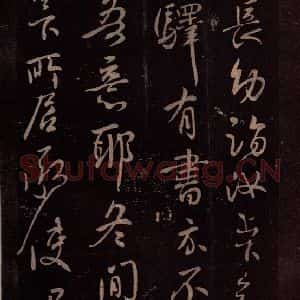 長幼
驛有書云不
吾意耶冬間
下所居使
Shufawang.CN